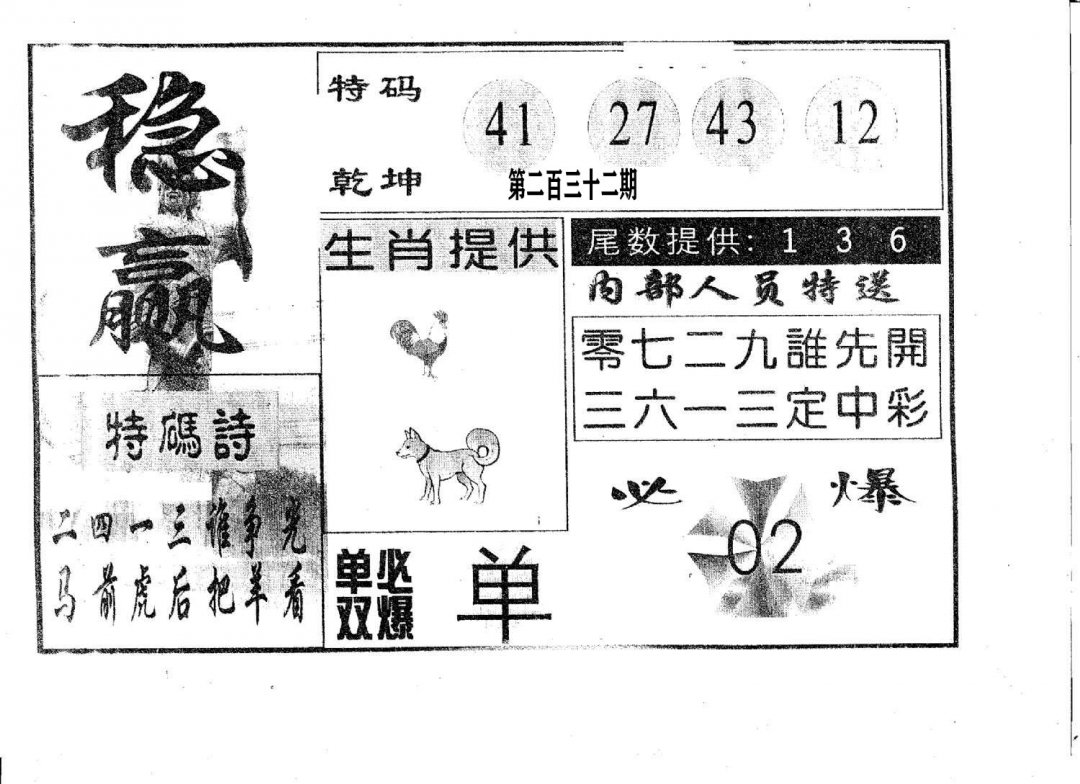 稳
赢
特码 41 27 43 12
乾坤 第二百三十二期
生肖提供
尾数提供: 1 3 6
内部人员特送
零七二九誰先開
三六一三定中彩
特碼詩
二四一三谁争光
马前虎后把羊看
必爆
02
单双必爆
单